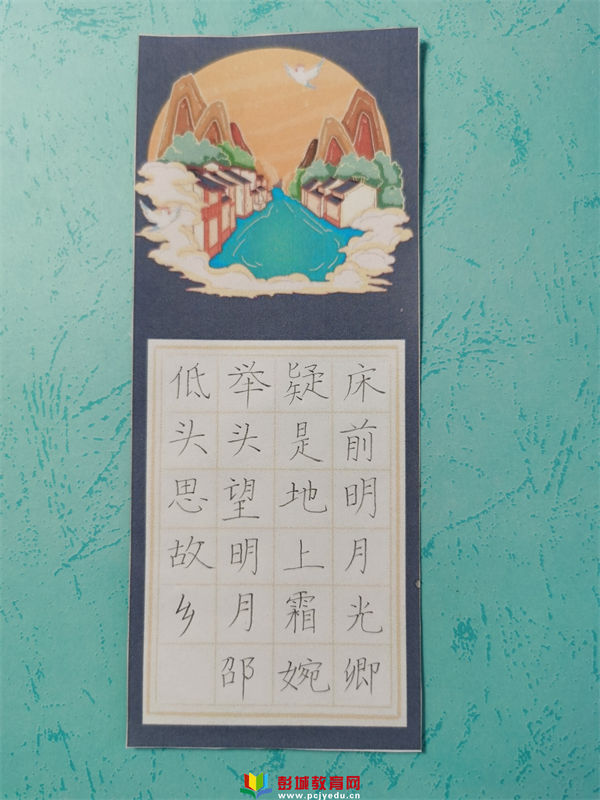 床前明月光
疑是地上霜
举头望明月
低头思故乡
邵婉卿
彭城教育网
www.pcjyedu.cn